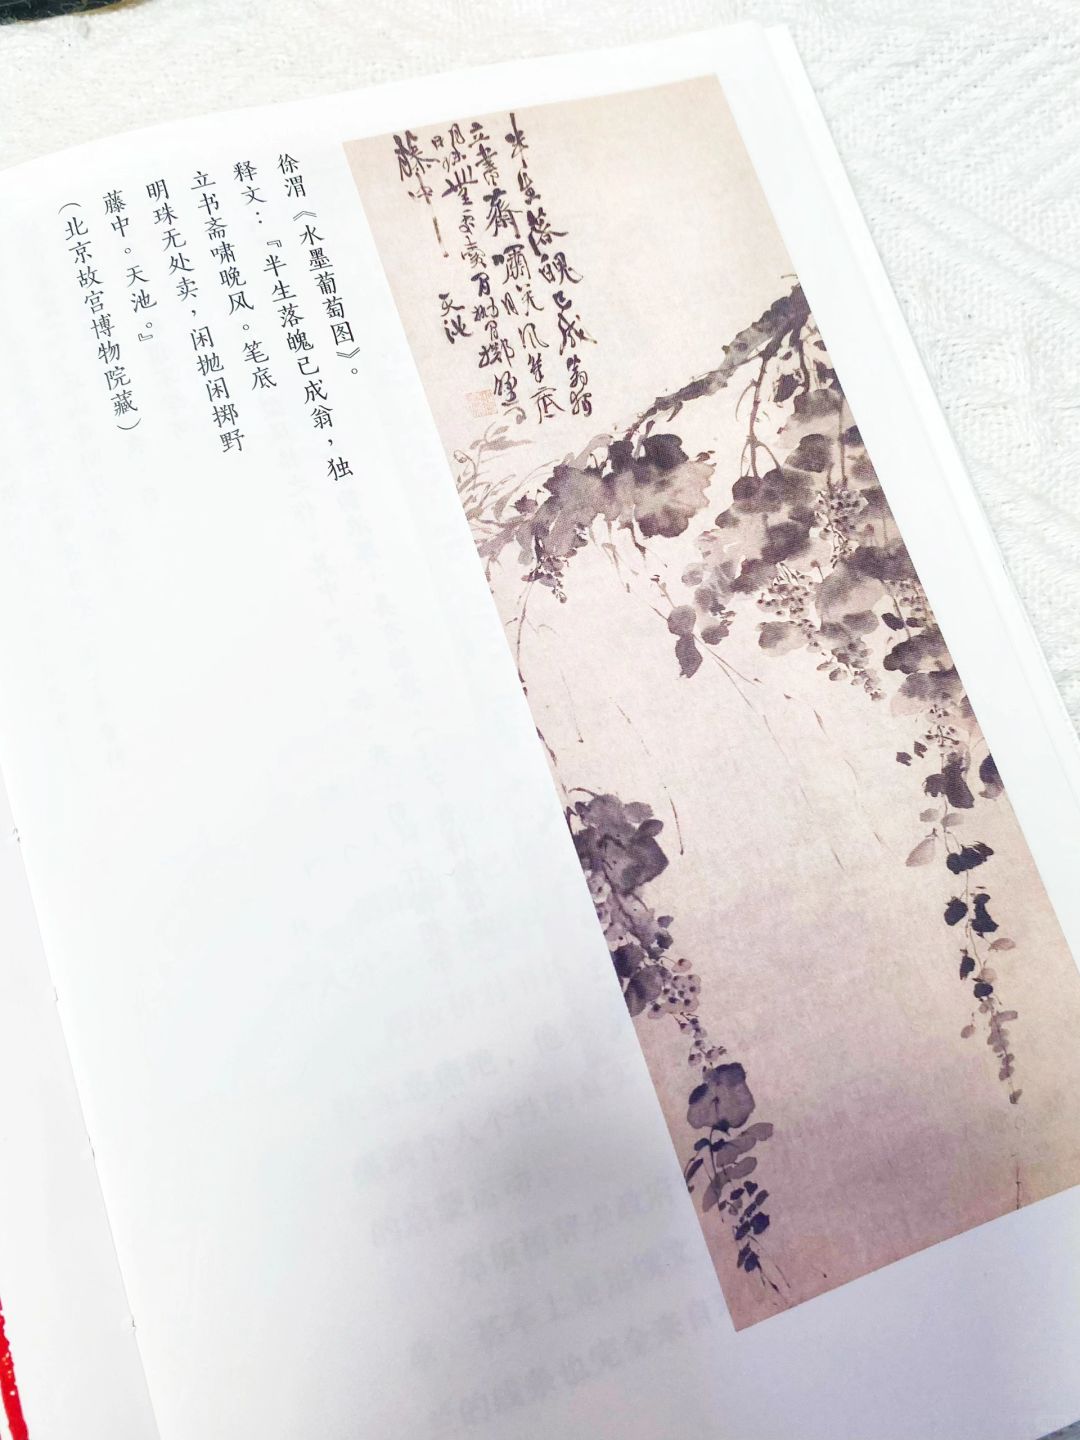 半生落魄已成翁獨
立書齋嘯晚風筆底
明珠無處賣閒拋閒擲野
藤中
天池
徐渭《水墨葡萄图》。
释文：『半生落魄已成翁，独
立书斋啸晚风。笔底
明珠无处卖，闲抛闲掷野
藤中。天池。』
（北京故宫博物院藏）